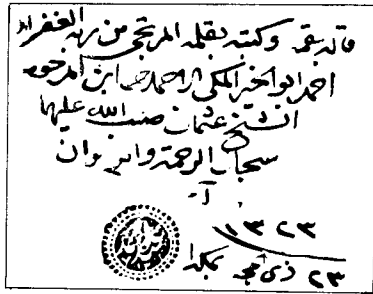 قاله بفمه وكتبه بقلمه المرتجي من ربه الغفران
احمد ابو الخير المكي الاحمدي ابن المرحوم
الشيخ عثمان صب الله عليهما
سجال الرحمة والرضوان
١٣٢٣
٢٣ ذي الحجة بمكة